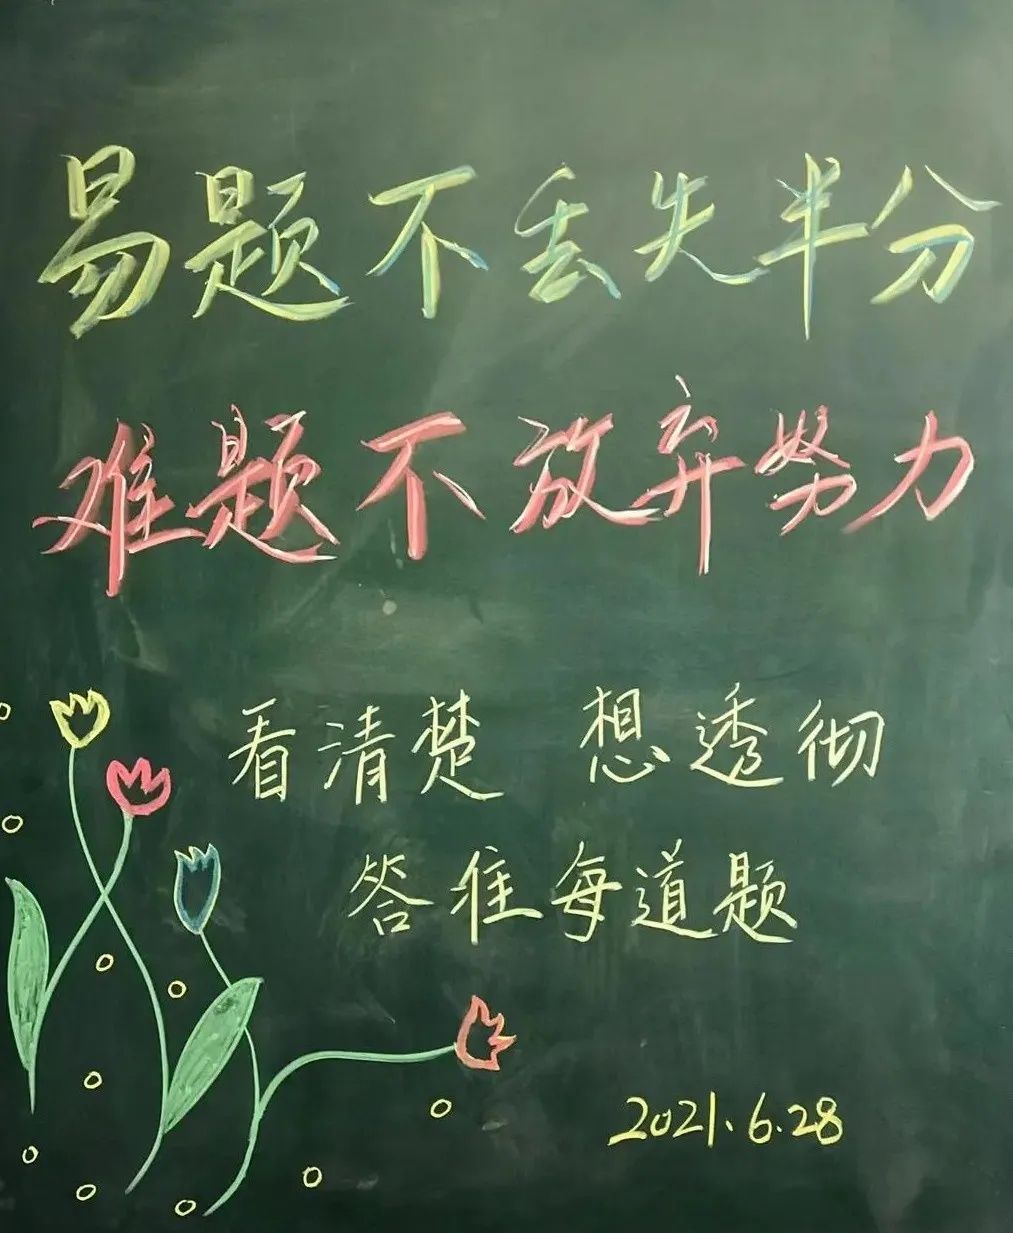 易题不丢失半分
难题不放弃努力
看清楚 想透彻
答准每道题
2021.6.28